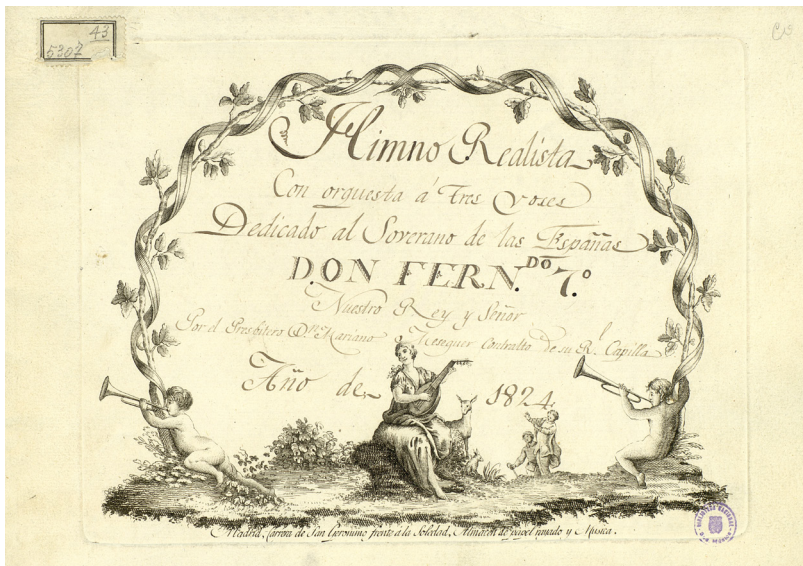 43
5307
Himno Realista
Con orquesta á tres voses
Dedicado al Soverano de las Españas
DON FERN.DO 7.º
Nuestro Rey y Señor
Por el Presbitero D.n Mariano Meseguer Contralto de su R.l Capilla
Año de 1824
Madrid, Carrera de San Geronimo frente a la Soledad, Almacen de papel rayado y Musica.